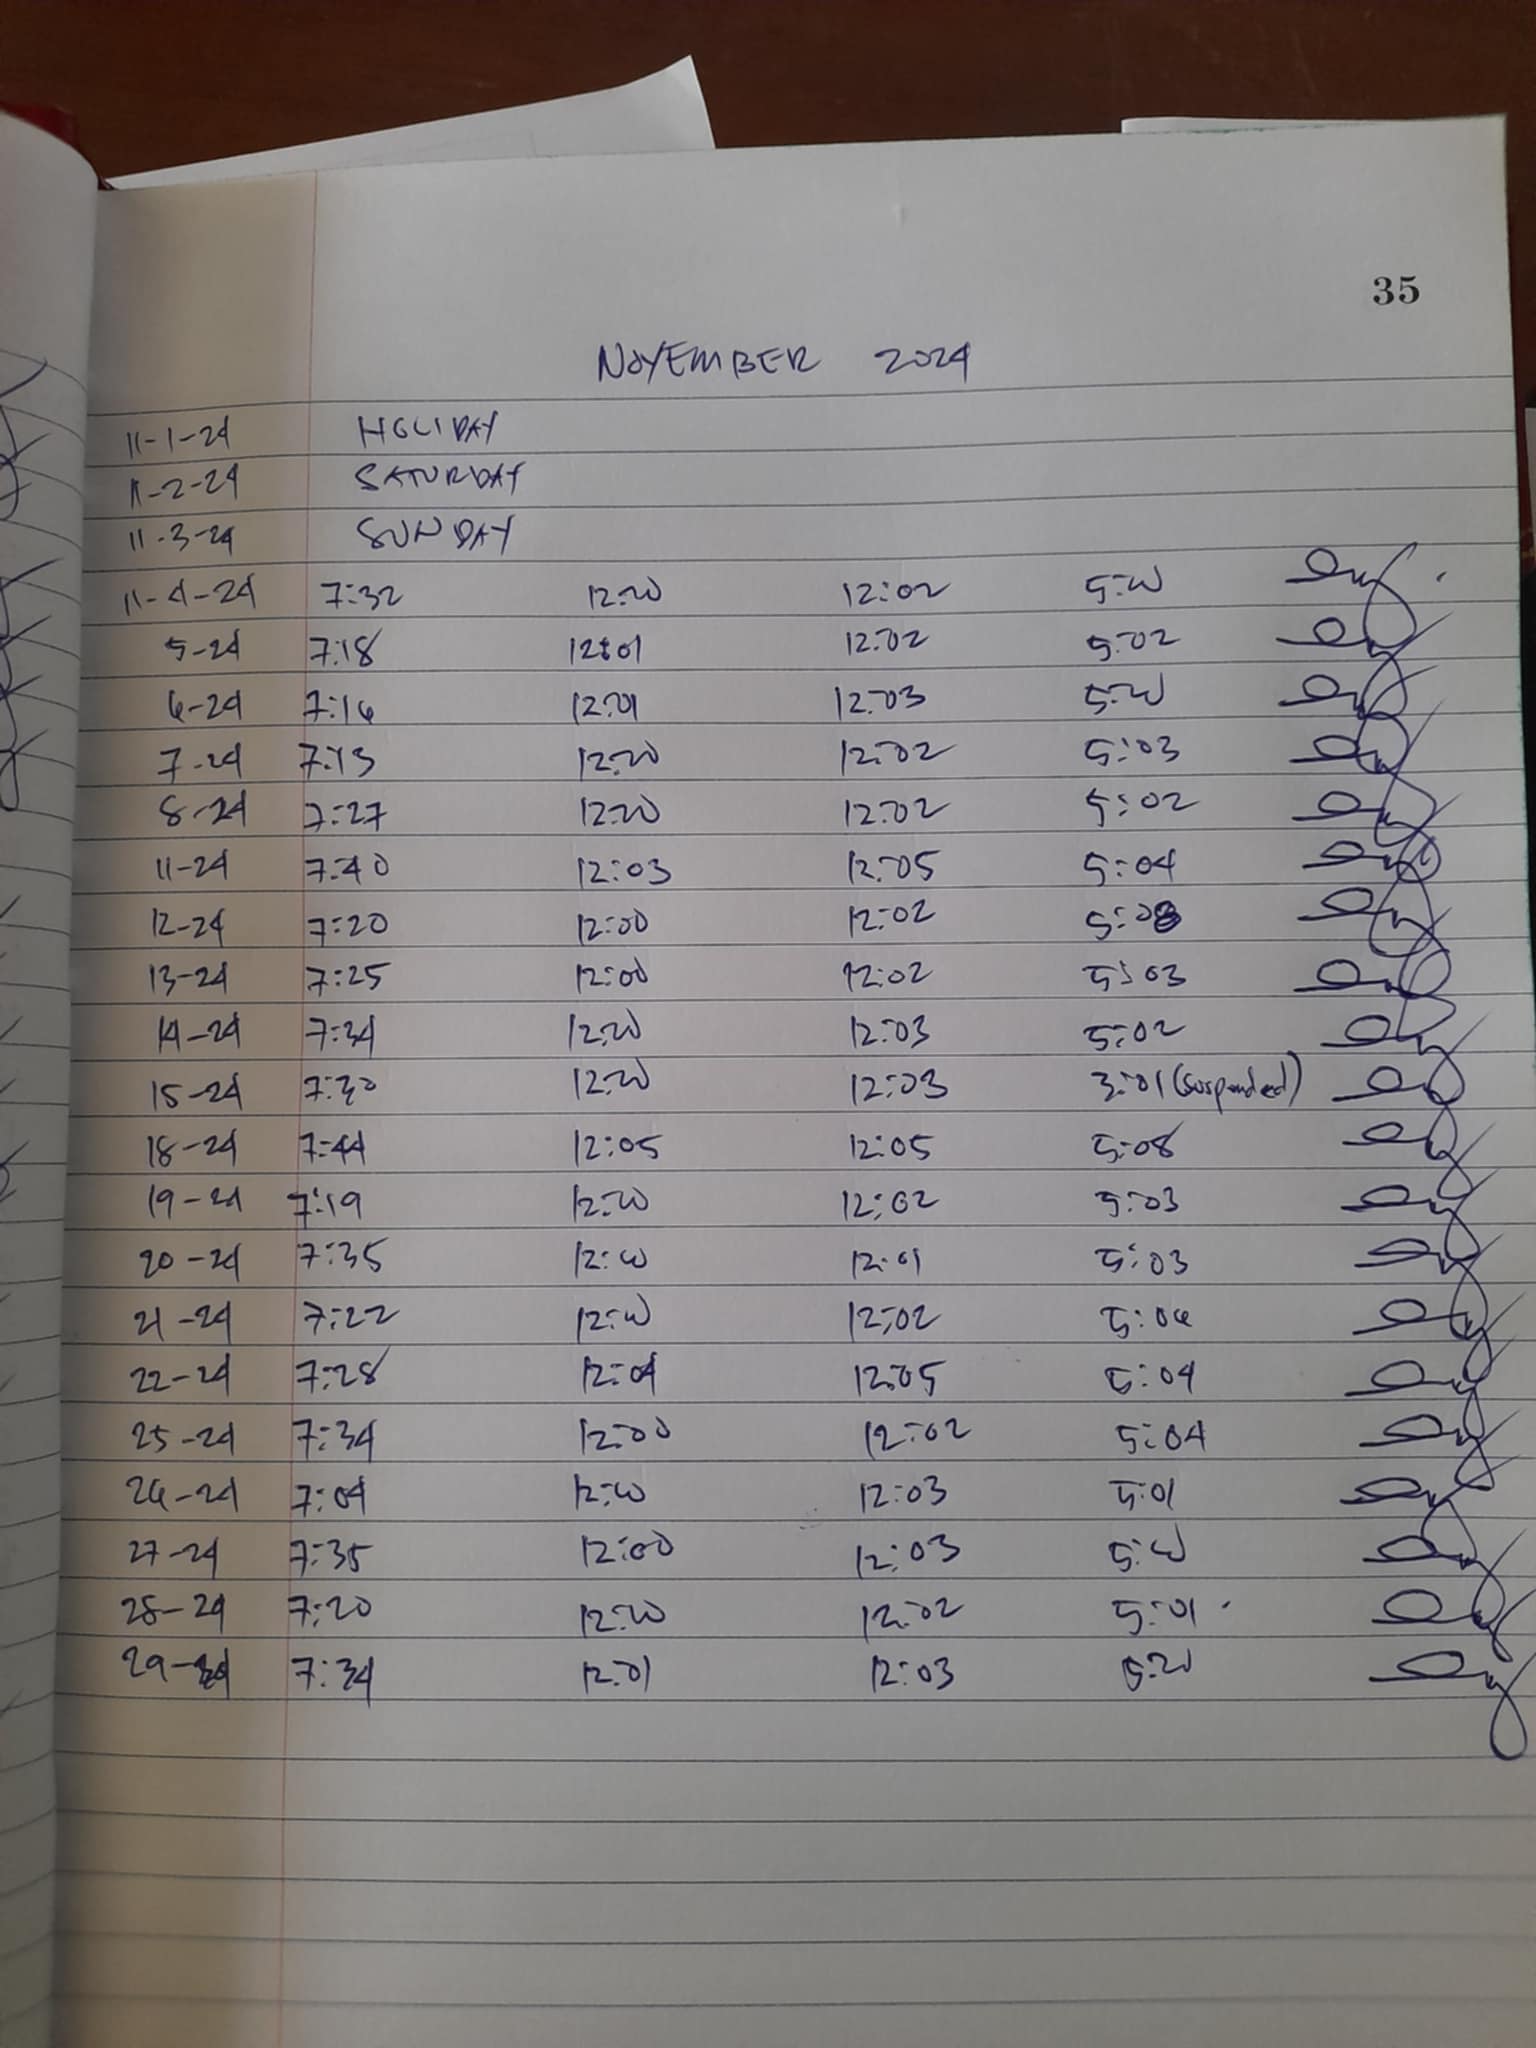 35
NOVEMBER 2024
11-1-24 HOLIDAY
11-2-24 SATURDAY
11-3-24 SUNDAY
11-4-24 7:32 12:00 12:02 5:00
5-24 7:18 12:01 12:02 5:02
6-24 7:16 12:01 12:03 5:00
7-24 7:13 12:00 12:02 5:03
8-24 7:27 12:00 12:02 5:02
11-24 7:40 12:03 12:05 5:04
12-24 7:20 12:00 12:02 5:03
13-24 7:25 12:00 12:02 5:03
14-24 7:34 12:00 12:03 5:02
15-24 7:30 12:00 12:03 3:01 (suspended)
18-24 7:44 12:05 12:05 5:08
19-24 7:19 12:00 12:02 5:03
20-24 7:35 12:00 12:01 5:03
21-24 7:22 12:00 12:02 5:06
22-24 7:28 12:04 12:05 5:04
25-24 7:34 12:00 12:02 5:04
26-24 7:04 12:00 12:03 5:01
27-24 7:35 12:00 12:03 5:00
28-24 7:20 12:00 12:02 5:01
29-24 7:34 12:01 12:03 5:00